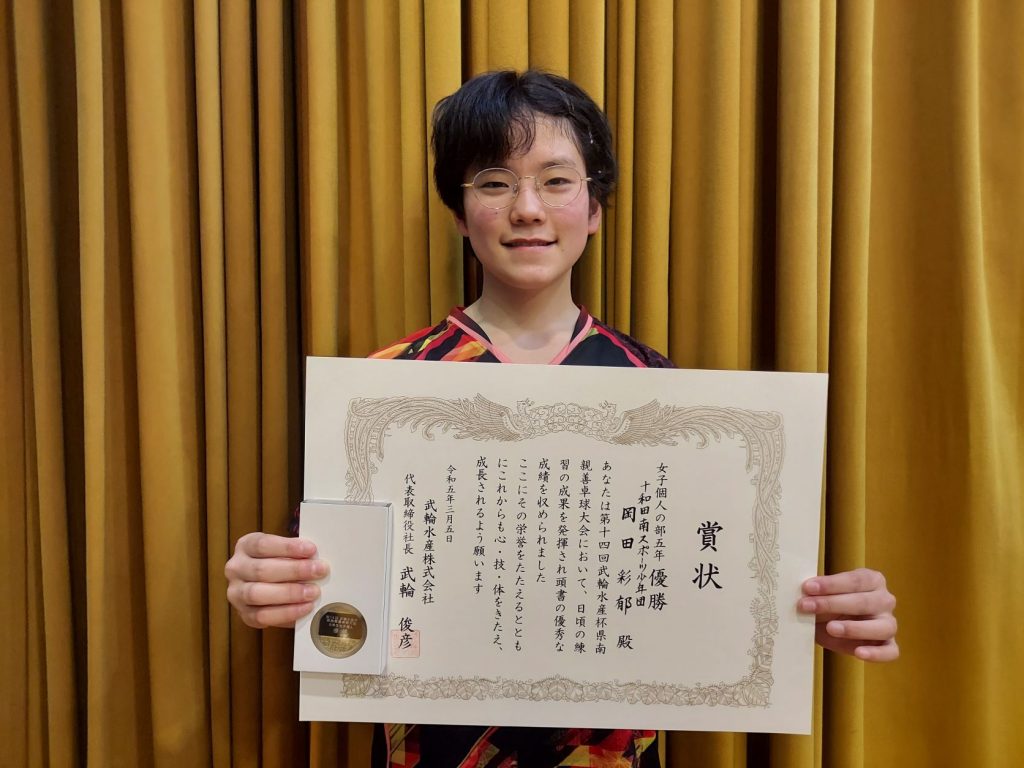 賞状
女子個人の部五年 優勝
十和田南スポーツ少年団
岡田 彩郁 殿
あなたは第十四回武輪水産杯県南
親善卓球大会において、日頃の練
習の成果を発揮され頭書の優秀な
成績を収められました
ここにその栄誉をたたえるととも
にこれからも心・技・体をきたえ、
成長されるよう願います
令和五年三月五日
武輪水産株式会社
代表取締役社長 武輪 俊彦